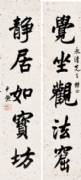 覺坐觀法窟
靜居如寶坊